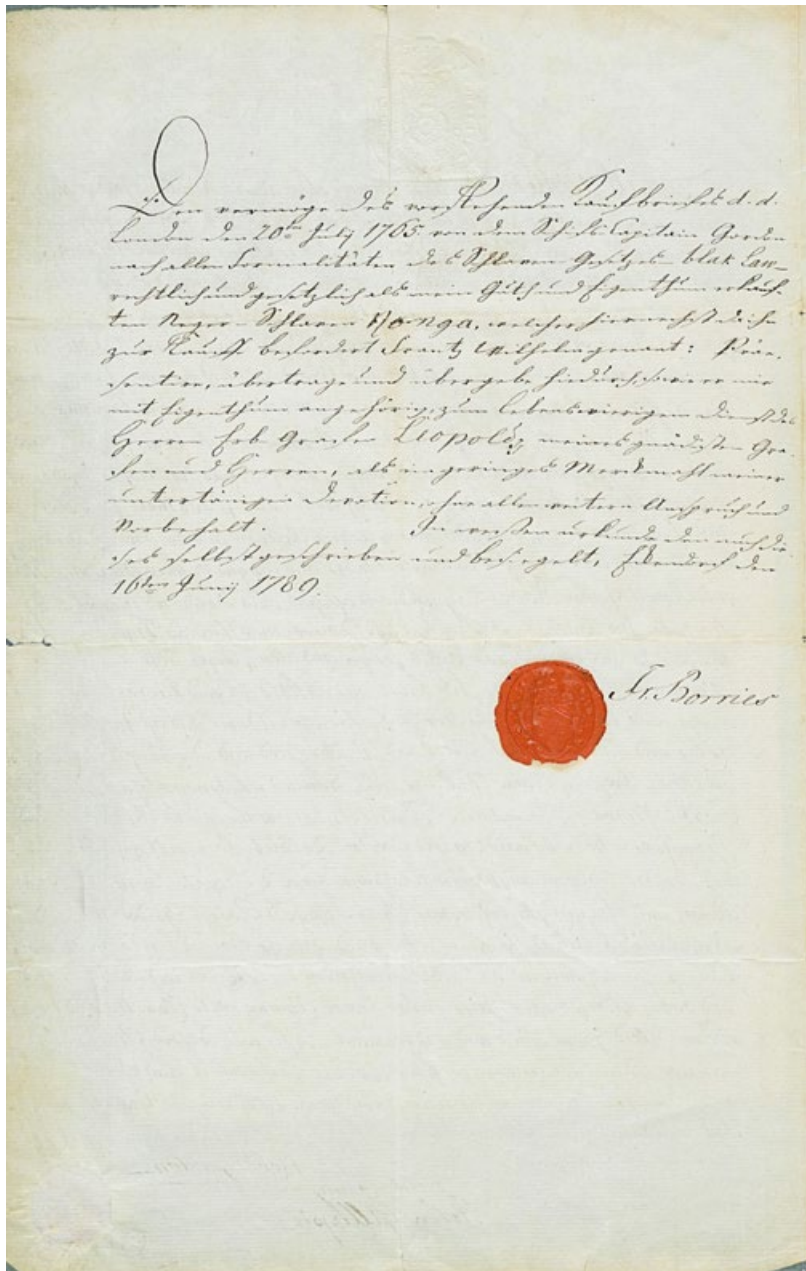 Den vermöge des vorstehenden Kaufbriefes d. d.
London den 20ten July 1765. von dem Schifs Capitain Gordon
nach allen Formalitäten des Schlaven Gesetzes blak Law–
rechtlich und gesetzlich als mein Guth und Eigenthum erkauf-
ten Neger-Schlaven Yonga, welcher hiernechst da ihn
zur Tauffe befordert Frantz Wilhelm genant: Præ-
sentire, übertrage und übergebe hiedurch, so wie er mir
mit Eigenthum angehörig, zum lebenswierigem Dienst des
Herren Erb Grafen Leopold, meines gnädigsten Gra-
fen und Herren, als ein geringes Merckmahl meiner
untertänigen Devotion, ohne allen weitern Anspruch und
Vorbehalt. In wessen urkunde den auch die-
ses selbst geschrieben und besiegelt, Eckendorf den
16ten Junij 1789.
Fr. Borries